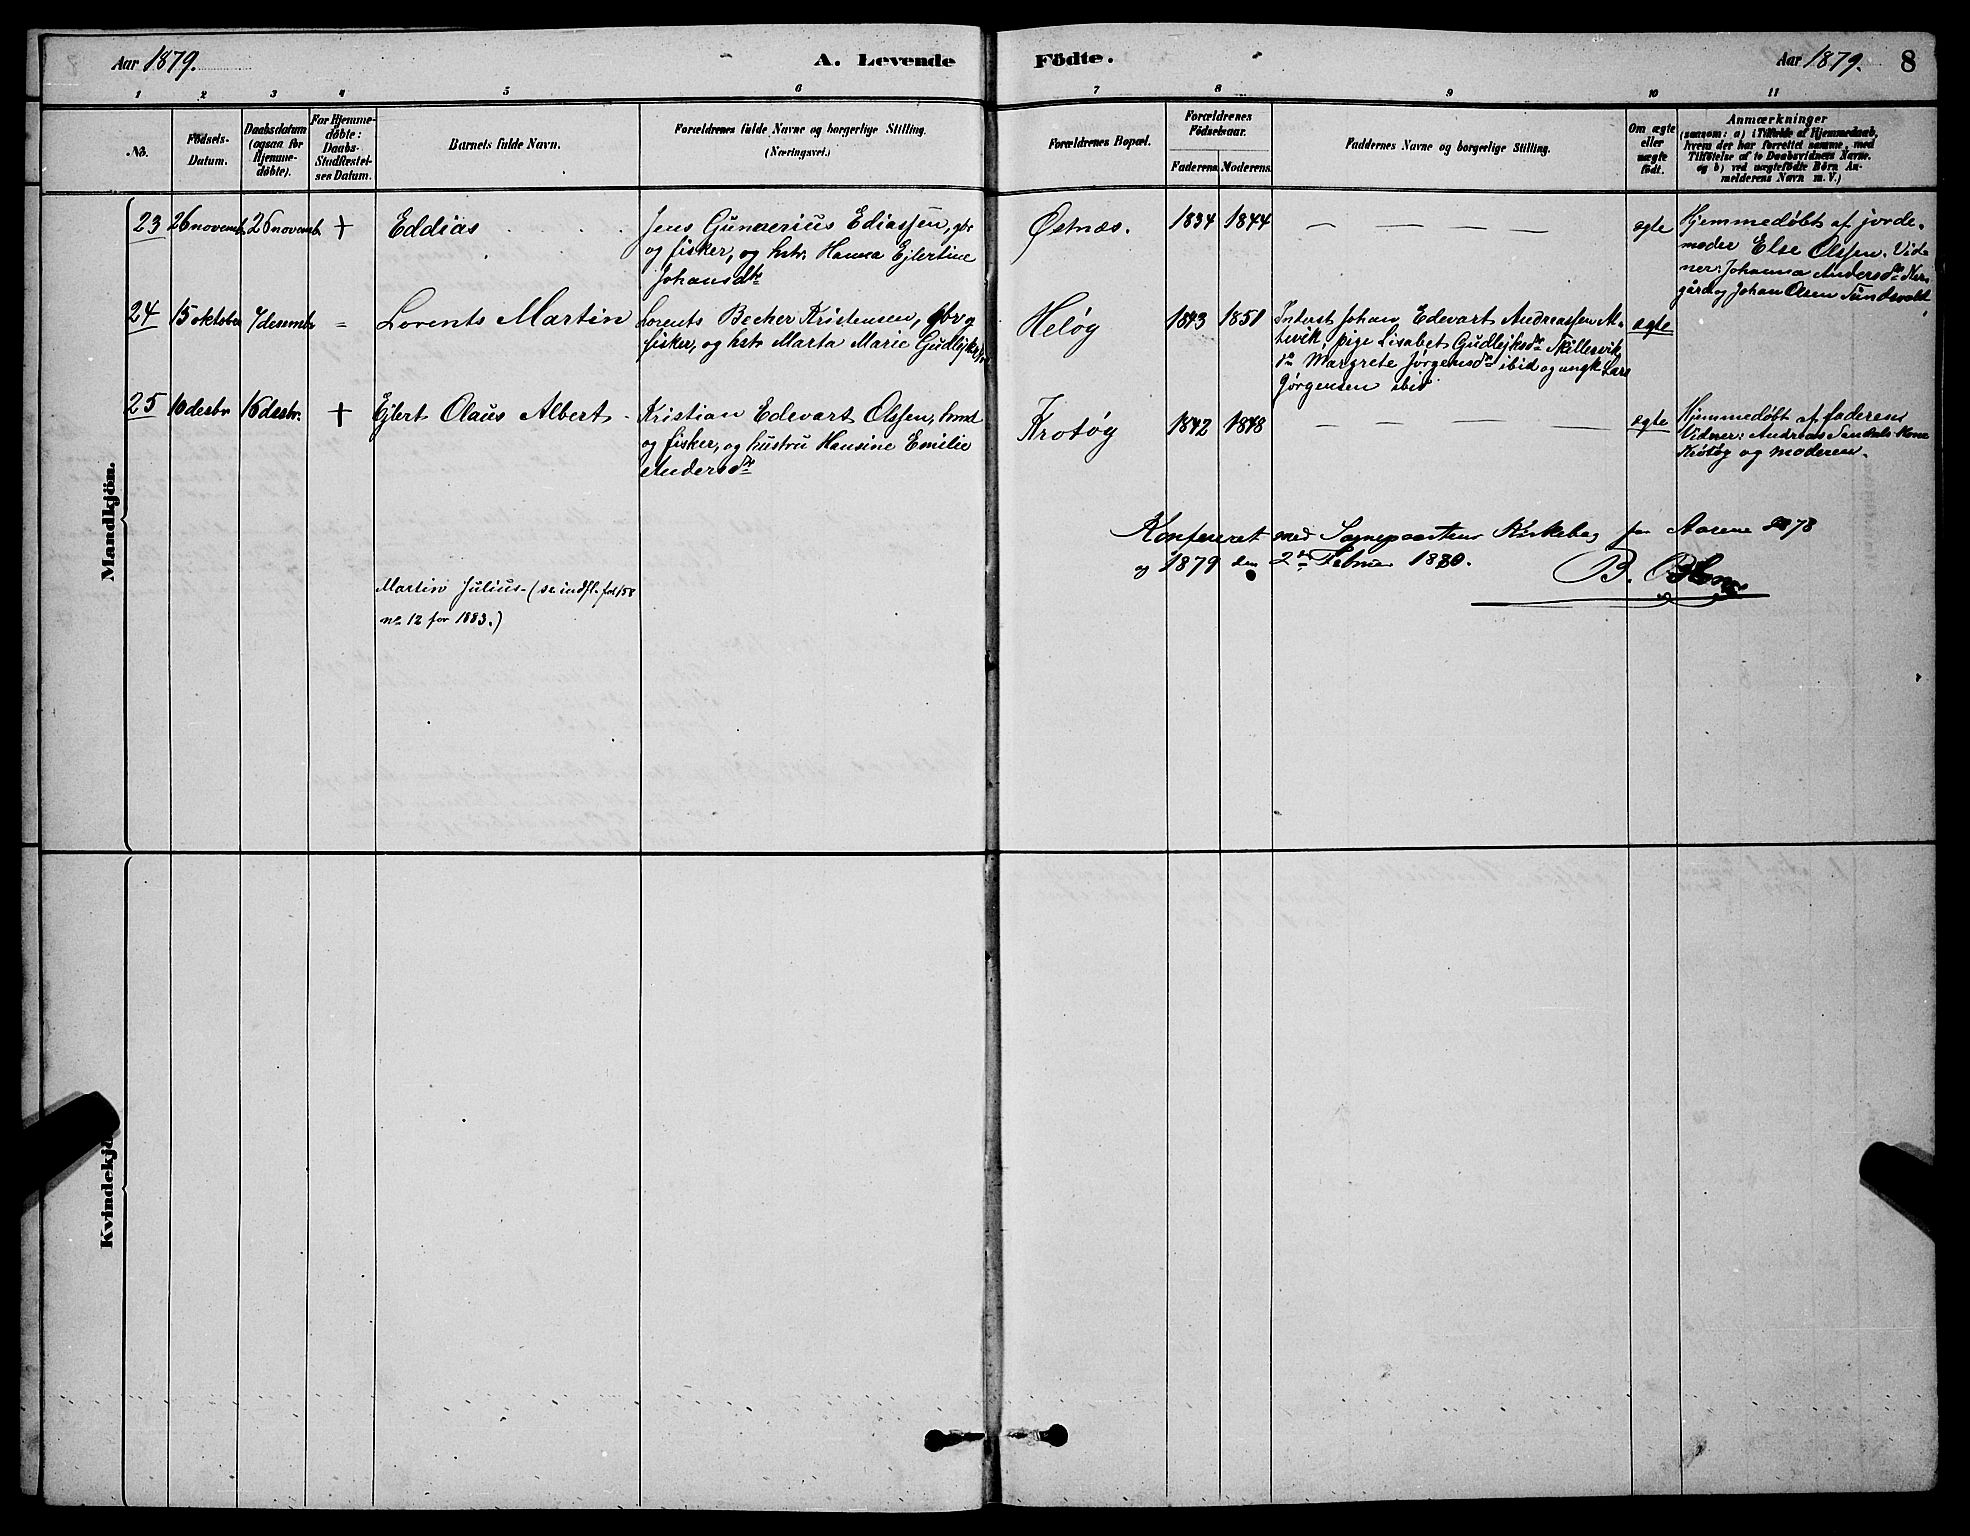 Aar 1879. A. Levende Födte. Aar 1879. 8
1 2 3 4 5 6 7 8 9 10 11
No.
Födsels-
Datum.
Daabsdatum
(ogsaa for
Hjemme-
døbte).
For Hjemme-
døbte:
Daabs-
Stadfæstel-
ses Datum.
Barnets fulde Navn.
Forældrenes fulde Navne og borgerlige Stilling.
(Næringsvei.)
Forældrenes Bopæl.
Forældrenes
Födselsaar.
Faderens. Moderens.
Faddernes Navne og borgerlige Stilling.
Om ægte
eller
uægte
født.
Anmærkninger
(saasom: a) i Tilfælde af Hjemmedaab,
hvem der har forrettet samme, med
Tilføielse af to Daabsvidners Navne.
og b) ved uægtefødte Börn An-
melderens Navn m. V.)
Mandkjön.
23 26 novemb. 26 novemb. + Eddias
Jens Gunnerius Ediassen, gbr
og fisker, og hstr. Hanna Ejlertine
Johansdtr
Østnæs. 1834 1844 — — — — ægte
Hjemmedøbt af jorde-
moder Else Olssen. Vid-
ner: Johanna Andersdtr Ner-
gård og Johan Olsen Sundsvold
24 15 oktober 7 desembr = Lorents Martin
Lorents Becher Kristensen, gbr og
fisker, og hstr Marta Marie Gudlejksdtr
Heløg 1843 1851
Inderst Johan Edevart Andreassen
pige Lisabet Gudlejksdr Skillesvik
do Margrete Jørgensdr ibid og ungk Lars
Jørgensen ibid
ægte
25 10 desbr 16 desbr. + Ejlert Olaus Albert
Kristian Edevart Olssen,
og fisker, og hustru Hansine Emilie
Andersdtr
Krotøg 1842 1848 — — — — ægte
Hjemmedøbt af faderen
Vidner: Andreas
og moderen.
Konfereret med Sognepræstens Kirkebog for Aarene 1878
og 1879 den 2den Februar 1880.
B.
Martin Julius - (se indfl. fol 158
no 12 for 1883.)
Kvindekjö